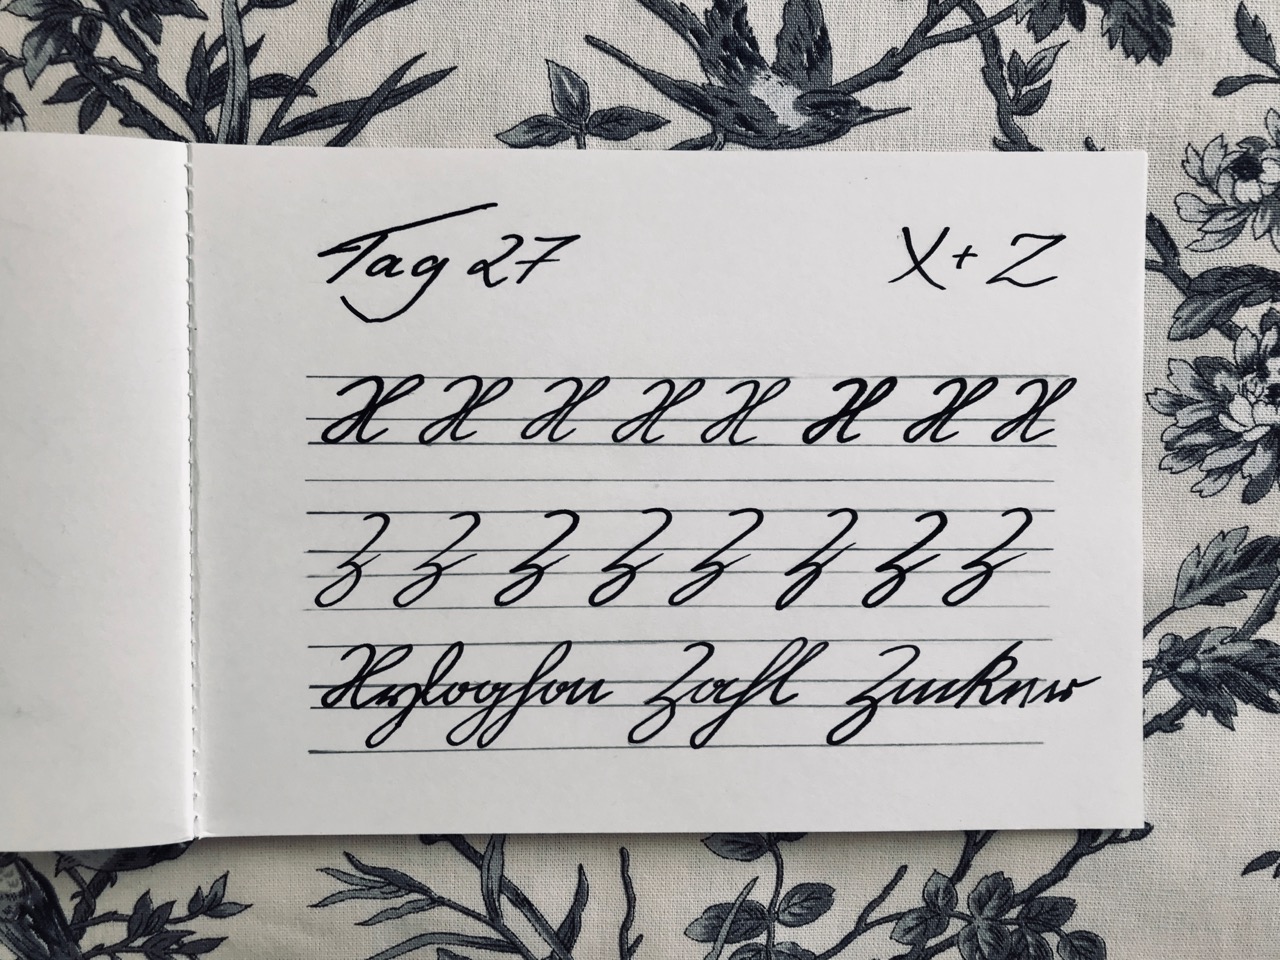 Tag 27 X + Z
X X X X X X X X
Z Z Z Z Z Z Z Z
Xylophon Zahl Zucker